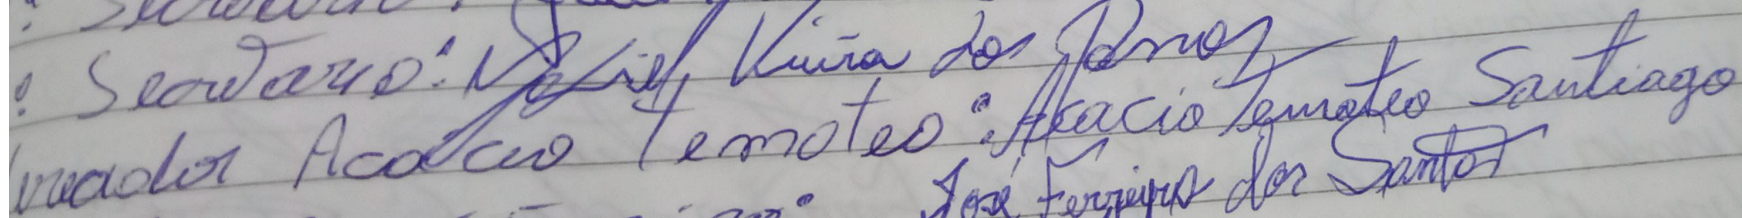 : Secretario:
: Secretario: Vieira dos
Vereador Acacio Temoteo: Akacio Temoteo Santiago
José Ferreira dos Santos